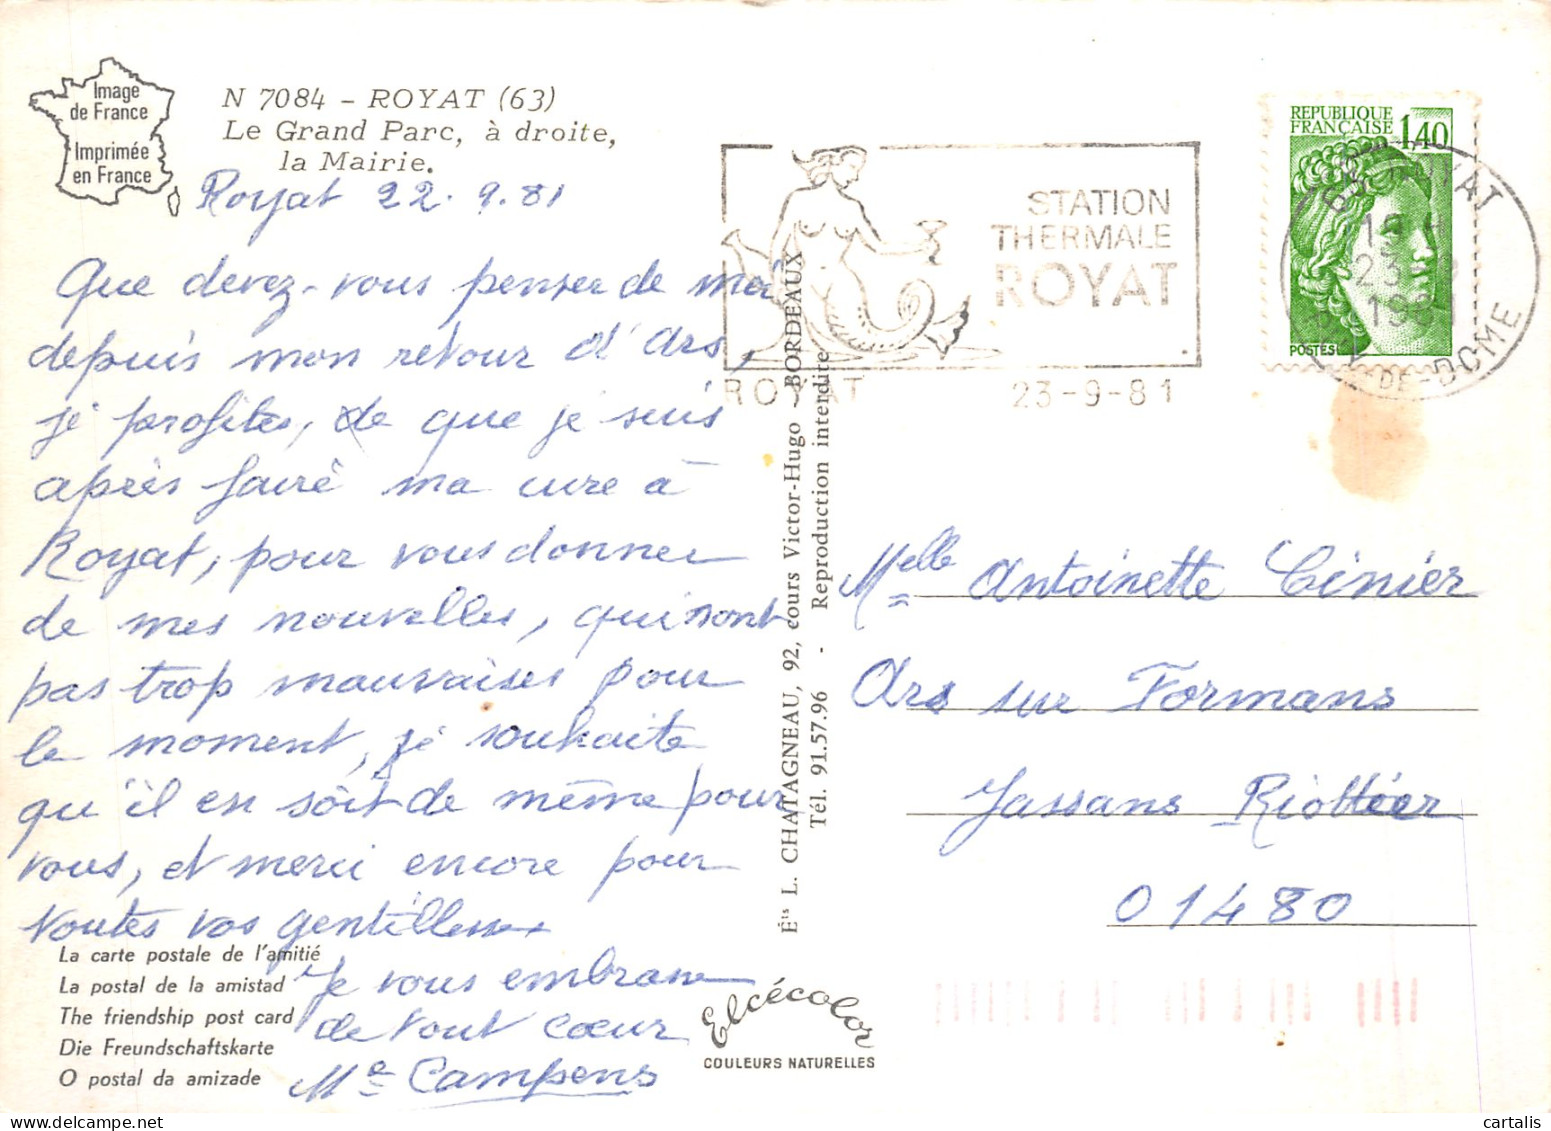 Image
de France
Imprimée
en France
N 7084 - ROYAT (63)
Le Grand Parc, à droite,
la Mairie.
Royat 22.9.81
Que devez-vous penser de moi
depuis mon retour d'Ars,
je profite, de que je suis
après faire ma cure à
Royat, pour vous donner
de mes nouvelles, qui sont
pas trop mauvaises pour
le moment, je souhaite
qu'il en soit de même pour
vous, et merci encore pour
toutes vos gentillesses
Je vous embrasse
de tout cœur
Me Campens
La carte postale de l'amitié
La postal de la amistad
The friendship post card
Die Freundschaftskarte
O postal da amizade
Éts L. CHATAGNEAU, 92, cours Victor-Hugo - BORDEAUX
Tél. 91.57.96 - Reproduction interdite
Elcécolor
COULEURS NATURELLES
STATION
THERMALE
ROYAT
ROYAT 23-9-81
REPUBLIQUE
FRANCAISE 1,40
POSTES
63 ROYAT
23
PUY-DE-DOME
Melle Antoinette Cinier
Ars sur Formans
Jassans Riottier
01480
cartalis